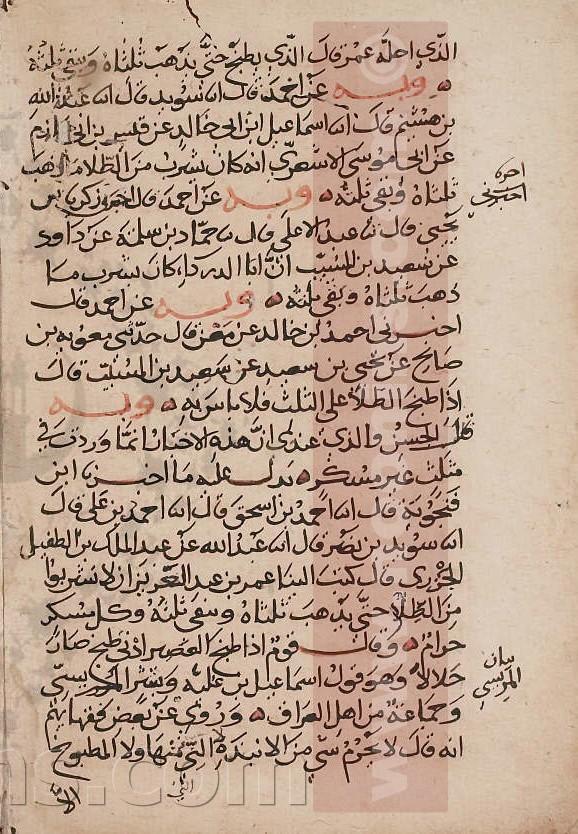 الذي احله عمر قال الذي يطبخ حتى يذهب ثلثاه ويبقى ثلثه
وبه عن احمد قال انا سويد قال انا عبد الله
بن هشيم قال انا اسماعيل ابن ابي خالد عن قيس بن ابي حازم
عن ابي موسى الاشعري انه كان يشرب من الطلا ما ذهب
ثلثاه وبقي ثلثه وبه عن احمد قال اخبرني زكريا بن
يحيى قال نا عبد الاعلى قال نا حماد بن سلمة عن داود
عن سعيد بن المسيب ان ابا الدرداء كان يشرب ما
ذهب ثلثاه وبقي ثلثه وبه عن احمد قال
اخبرني احمد بن خالد عن معن قال حدثني معوية بن
صالح عن يحيى بن سعيد عن سعيد بن المسيب قال
اذا طبخ الطلا على الثلث فلا باس به وبه
قال الحسن والذي عندي ان هذه الاخبار انما وردت في
مثلث غير مسكر يدل عليه ما اخبرنا ابن
فنجوية قال انا احمد بن اسحق قال انا احمد بن علي قال
انا سويد بن نصر قال انا عبد الله عن عبد الملك بن الطفيل
الجزري قال كتب الينا عمر بن عبد العزيز ان لا تشربوا
من الطلا حتى يذهب ثلثاه ويبقى ثلثه وكل مسكر
حرام وقال قوم اذا طبخ العصير ادنى طبخ صار
حلالا وهو قول اسماعيل ابن علية وبشر المريسي
وجماعة من اهل العراق وروي عن بعض فقهايهم
انه قال لا يحرم شي من الانبذة الني منها ولا المطبوخ
بيان
المريسي
الني